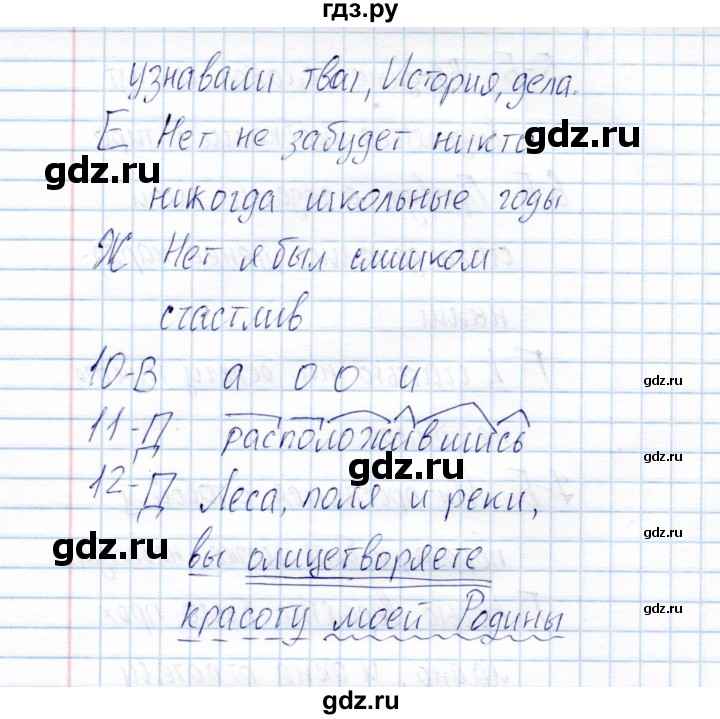 гдз.ру
узнавали , История, дела.
Е Нет не забудет никто
gdz.ru
gdz.ru
никогда школьные годы
Ж Нет я был слишком
счастлив
gdz.ru
10-В а о о и
gdz.ru
11-Д расположившись
gdz.ru
gdz.ru
12-Д Леса, поля и реки,
gdz.ru
gdz.ru
вы олицетворяете
красоту моей Родины
gdz.ru
gdz.ru